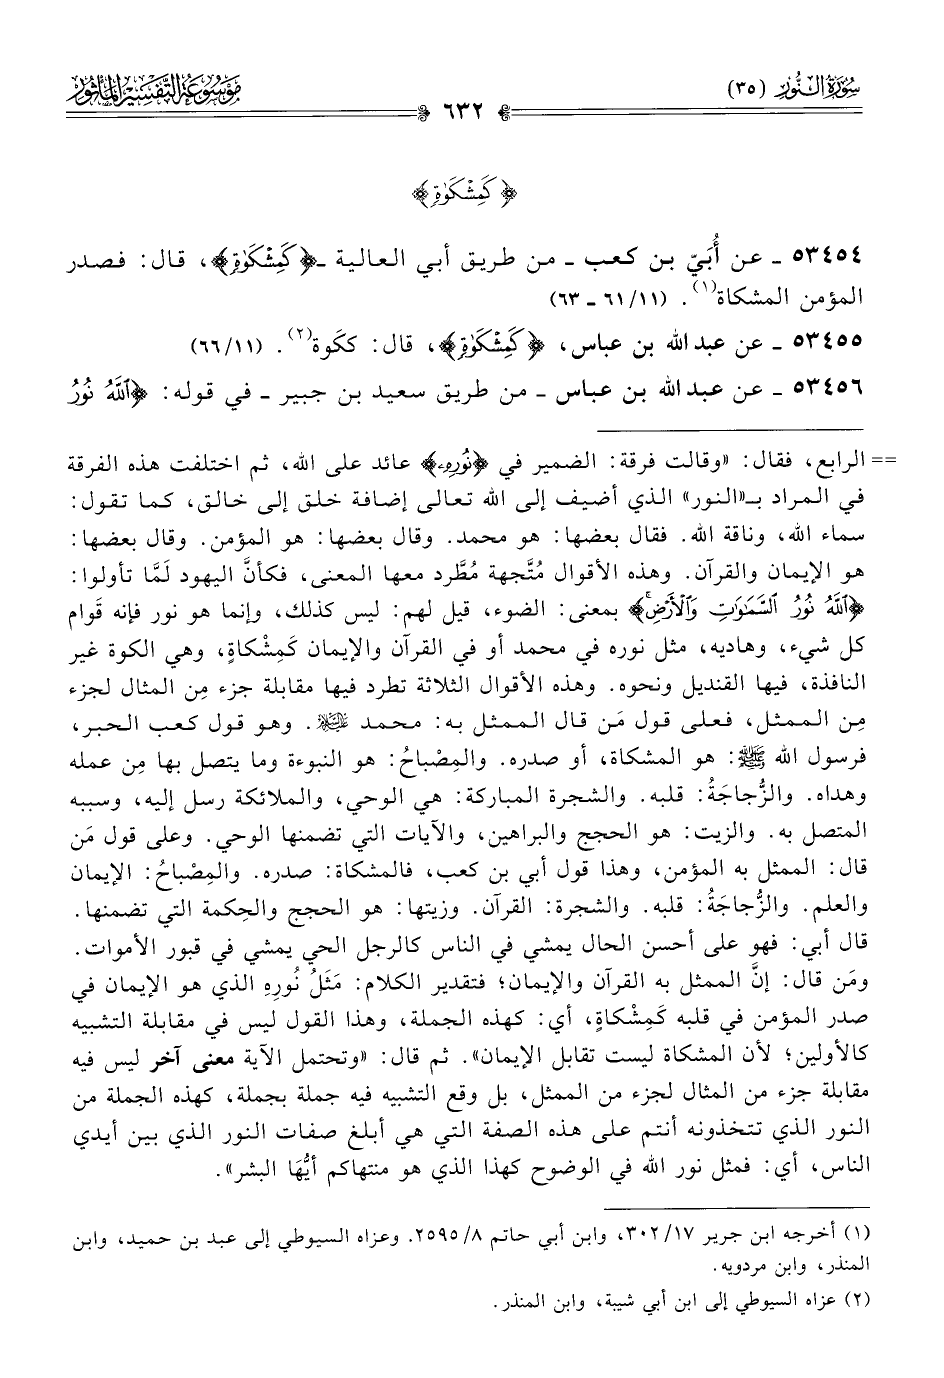 سُورَةُ النُّورِ (٣٥)
مَوْسُوعَة التَّفْسِير المَأْثُور
٦٣٢
﴿كَمِشْكَوٰةٍ﴾
٥٣٤٥٤ ـ عن أُبَيّ بن كعب ـ من طريق أبي العالية ـ ﴿كَمِشْكَوٰةٍ﴾، قال: فصدر
المؤمن المشكاة(١). (١١/ ٦١ ـ ٦٣)
٥٣٤٥٥ ـ عن عبد الله بن عباس، ﴿كَمِشْكَوٰةٍ﴾، قال: ككَوة(٢). (١١/ ٦٦)
٥٣٤٥٦ ـ عن عبد الله بن عباس ـ من طريق سعيد بن جبير ـ في قوله: ﴿ٱللَّهُ نُورُ
== الرابع، فقال: «وقالت فرقة: الضمير في ﴿نُورِهِۦ﴾ عائد على الله، ثم اختلفت هذه الفرقة
في المراد بـ«النور» الذي أضيف إلى الله تعالى إضافة خلق إلى خالق، كما تقول:
سماء الله، وناقة الله. فقال بعضها: هو محمد. وقال بعضها: هو المؤمن. وقال بعضها:
هو الإيمان والقرآن. وهذه الأقوال مُتَّجهة مُطَّرد معها المعنى، فكأنَّ اليهود لَمَّا تأولوا:
﴿ٱللَّهُ نُورُ ٱلسَّمَٰوَٰتِ وَٱلْأَرْضِۚ﴾ بمعنى: الضوء، قيل لهم: ليس كذلك، وإنما هو نور فإنه قَوام
كل شيء، وهاديه، مثل نوره في محمد أو في القرآن والإيمان كَمِشْكاةٍ، وهي الكوة غير
النافذة، فيها القنديل ونحوه. وهذه الأقوال الثلاثة تطرد فيها مقابلة جزء مِن المثال لجزء
مِن الممثل، فعلى قول مَن قال الممثل به: محمد ﷺ. وهو قول كعب الحبر،
فرسول الله ﷺ: هو المشكاة، أو صدره. والمِصْباحُ: هو النبوءة وما يتصل بها مِن عمله
وهداه. والزُّجاجَةُ: قلبه. والشجرة المباركة: هي الوحي، والملائكة رسل إليه، وسببه
المتصل به. والزيت: هو الحجج والبراهين، والآيات التي تضمنها الوحي. وعلى قول مَن
قال: الممثل به المؤمن، وهذا قول أبي بن كعب، فالمشكاة: صدره. والمِصْباحُ: الإيمان
والعلم. والزُّجاجَةُ: قلبه. والشجرة: القرآن. وزيتها: هو الحجج والحِكمة التي تضمنها.
قال أبي: فهو على أحسن الحال يمشي في الناس كالرجل الحي يمشي في قبور الأموات.
ومَن قال: إنَّ الممثل به القرآن والإيمان؛ فتقدير الكلام: مَثَلُ نُورِهِ الذي هو الإيمان في
صدر المؤمن في قلبه كَمِشْكاةٍ، أي: كهذه الجملة، وهذا القول ليس في مقابلة التشبيه
كالأولين؛ لأن المشكاة ليست تقابل الإيمان». ثم قال: «وتحتمل الآية معنى آخر ليس فيه
مقابلة جزء من المثال لجزء من الممثل، بل وقع التشبيه فيه جملة بجملة، كهذه الجملة من
النور الذي تتخذونه أنتم على هذه الصفة التي هي أبلغ صفات النور الذي بين أيدي
الناس، أي: فمثل نور الله في الوضوح كهذا الذي هو منتهاكم أيُّها البشر».
(١) أخرجه ابن جرير ١٧/ ٣٠٢، وابن أبي حاتم ٨/ ٢٥٩٥. وعزاه السيوطي إلى عبد بن حميد، وابن
المنذر، وابن مردويه.
(٢) عزاه السيوطي إلى ابن أبي شيبة، وابن المنذر.